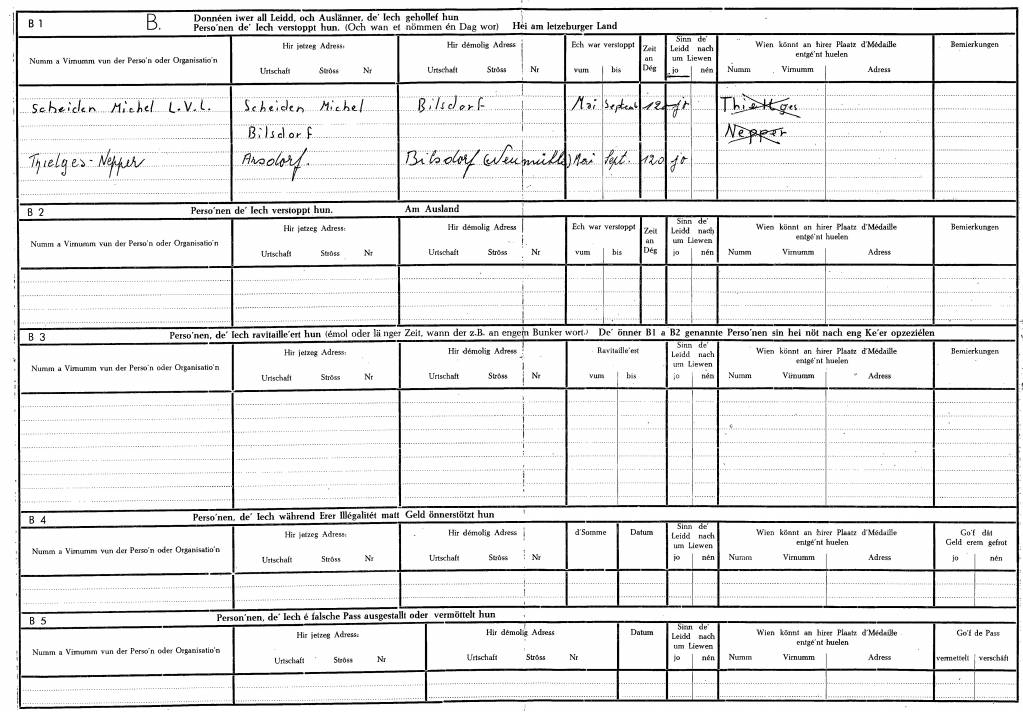 B 1 B. Donnéen iwer all Leidd, och Auslänner, de' Iech gehollef hun
Perso'nen de' Iech verstoppt hun. (Och wan et nömmen én Dag wor) Hei am letzeburger Land
Numm a Virnumm vun der Perso'n oder Organisatio'n
Hir jetzeg Adress:
Urtschaft Ströss Nr
Hir démolig Adress
Urtschaft Ströss Nr
Ech war verstoppt
vum bis
Zeit an Dég
Sinn de' Leidd nach um Liewen
jo nén
Wien könnt an hirer Plaatz d'Médaille entgé'nt huelen
Numm Virnumm Adress
Bemierkungen
Scheiden Michel L.V.L. Scheiden Michel Bilsdorf Mai Septemb 120 jo Thielges
Bilsdorf Nepper
Thielges-Nepper Arsdorf. Bilsdorf (Neumühle) Mai Sept. 120 jo
B 2 Perso'nen de' Iech verstoppt hun. Am Ausland
Numm a Virnumm vun der Perso'n oder Organisatio'n
Hir jetzeg Adress:
Urtschaft Ströss Nr
Hir démolig Adress
Urtschaft Ströss Nr
Ech war verstoppt
vum bis
Zeit an Dég
Sinn de' Leidd nach um Liewen
jo nén
Wien könnt an hirer Plaatz d'Médaille entgé'nt huelen
Numm Virnumm Adress
Bemierkungen
B 3 Perso'nen, de' Iech ravitaille'ert hun (émol oder länger Zeit, wann der z.B. an engem Bunker wort.) De' önner B1 a B2 genannte Perso'nen sin hei nöt nach eng Ke'er opzeziélen
Numm a Virnumm vun der Perso'n oder Organisatio'n
Hir jetzeg Adress:
Urtschaft Ströss Nr
Hir démolig Adress
Urtschaft Ströss Nr
Ravitaille'ert
vum bis
Sinn de' Leidd nach um Liewen
jo nén
Wien könnt an hirer Plaatz d'Médaille entgé'nt huelen
Numm Virnumm Adress
Bemierkungen
B 4 Perso'nen, de' Iech während Erer Illégalitét matt Geld önnerstötzt hun
Numm a Virnumm vun der Perso'n oder Organisatio'n
Hir jetzeg Adress:
Urtschaft Ströss Nr
Hir démolig Adress
Urtschaft Ströss Nr
d'Somme
Datum
Sinn de' Leidd nach um Liewen
jo nén
Wien könnt an hirer Plaatz d'Médaille entgé'nt huelen
Numm Virnumm Adress
Go'f dât Geld erem gefrot
jo nén
B 5 Person'nen, de' Iech é falsche Pass ausgestallt oder vermöttelt hun
Numm a Virnumm vun der Perso'n oder Organisatio'n
Hir jetzeg Adress:
Urtschaft Ströss Nr
Hir démolig Adress
Urtschaft Ströss Nr
Datum
Sinn de' Leidd nach um Liewen
jo nén
Wien könnt an hirer Plaatz d'Médaille entgé'nt huelen
Numm Virnumm Adress
Go'f de Pass
vermettelt verschâft